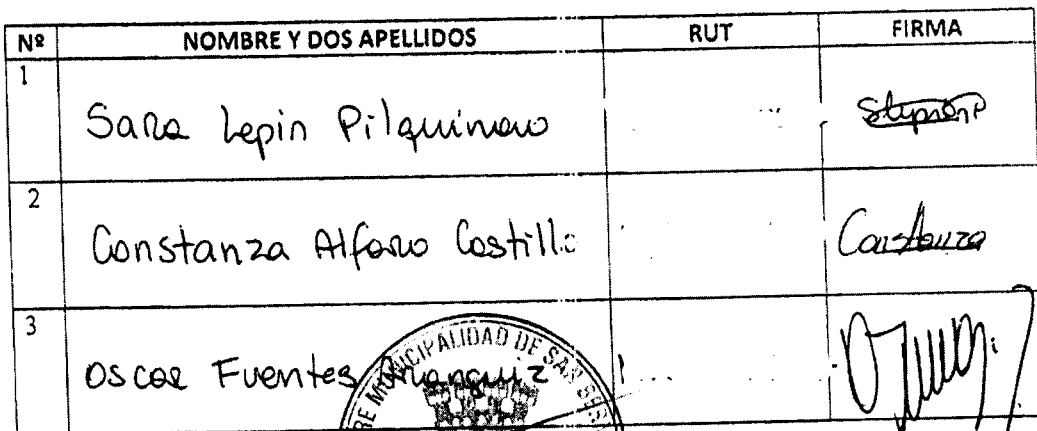 Nº NOMBRE Y DOS APELLIDOS RUT FIRMA
1 Sara Lepin Pilquinao
2 Constanza Alfaro Castillo Constanza
3 Oscar Fuentes
MUNICIPALIDAD DE SAN